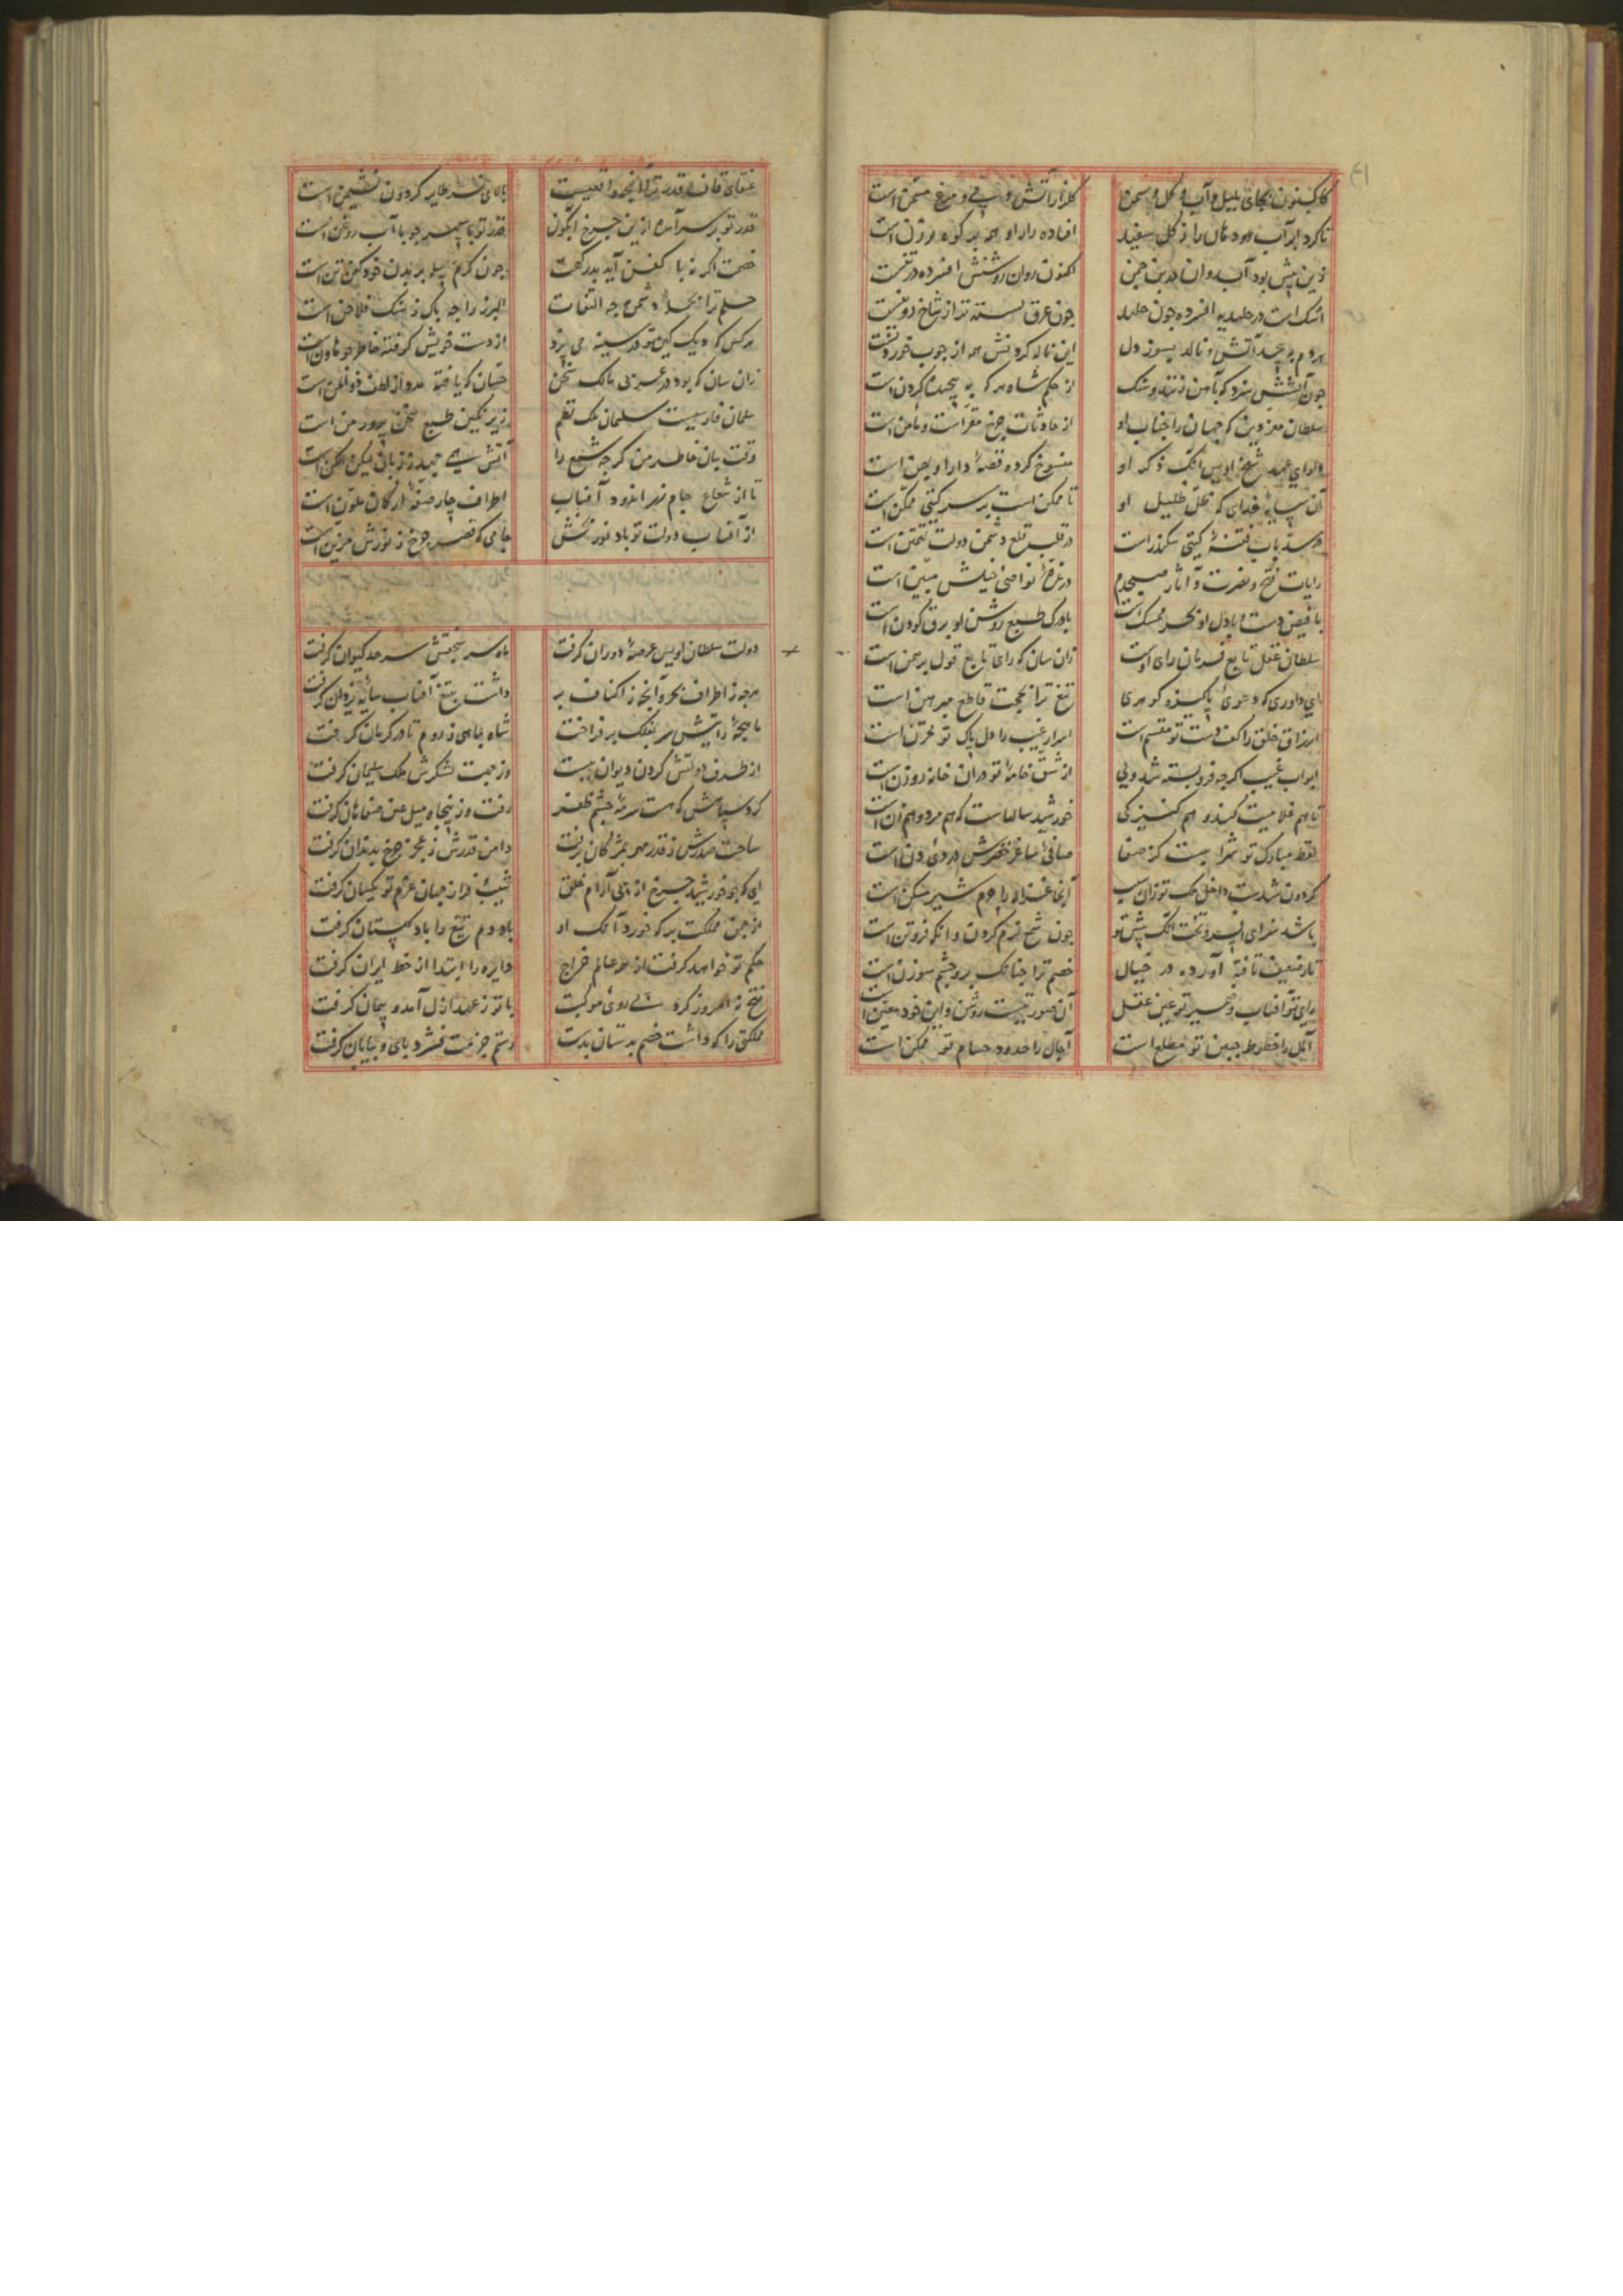 کاکنون بجای بلبل و آب و گل و سمن گلزار آتش و می و مرغ مسمن است
تا کرد ابر آب را ز گل سفید افتاده راز او همه بر کوه و روزن است
زین پیش بود آب روان در بن چمن اکنون روان روشنش افسرده در تنست
اشک است در افسرده چون جلید چون عرق بسته شد از شاخ
هر دم آتش و نالد بسوز دل این ناله کردنش همه از چوب خوردنست
چون آتشش سزد که بآهن زنند و سنگ از حکم شاه هر که به پیچیده گردن است
سلطان معز دین که جهان را جناب او از حادثات چرخ مقر است و مامن است
دارای عهد شیخ اویس آنک ذکر او منسوخ کرده قصه دارا و بهمن است
آن سایه خدای که ظل ظلیل او تا ممکن است بر سر گیتی ممکن است
در سد باب فتنه گیتی سکندر است در قلب قلع دشمن دولت تهمتن است
رایات فتح و نصرت و آثار صبحدم در غره نواصی خیلش مبین است
با فیض دست و با دل او بحر ممسک است با درک طبع روشن او برق کودن است
سلطان عقل تابع فرمان رای اوست زان سان که رای تابع قول برهمن است
ای داوری که دعوی پاکیزه گوهری تیغ ترا بحجت قاطع مبرهن است
ارزاق خلق را کف دست تو مقسم است اسرار غیب را دل پاک تو مخزن است
ابواب غیب اگرچه فرو بسته شد ولی از شق خامه تو در آن خانه روزن است
تا هم غلامیت کند و هم کنیزکی خورشید سالهاست که هم مرد و هم زن است
لفظ مبارک تو شرابیست کز صفا صافی ساغر خضرش دردی دن است
گردون شدست داخل ملک تو زان سبب آنجا غزاله را حرم شیر مسکن است
باشد سزای افسر و تخت آنک پیش تو چون شمع نرم گردن و آنکو فروتن است
تار ضعیف تافته آورده در خیال خصم ترا چنانک برو چشم سوزن است
رای تو آفتاب و ضمیر تو عین عقل آن صورتیست روشن و این خود معین است
آمال را خطوط جبین تو مطلع است آجال را حدود حسام تو ممکن است
عنقای قاف قدر ترا آنچه واقعیست بالای نسر طایر گردون نشیمن است
قدر تو بر سر آمده از این چرخ آبگون قدر تو با سپهر چو با آب روغن است
خصمت اگر نه با کفن آید بدرگهت چون کرم پیله بر بدن خود کفن تن است
حلم ترا بحمله دشمن چه التفات البرز را چه باک ز سنگ فلاخن است
هر کس که دیک کین تو در سینه می پزد از دست خویش کوفته خاطر چو هاون است
زان سان که بود در عربی مالک سخن حسان که یافته مدد از لطف ذوالمن است
سلمان فارسیست سلمان ملک نظم زیر نگین طبع سخن پرور من است
وقت بیان خاطر من گرچه شمع را آتش همی جهد ز زبان لیک الکن است
تا از شعاع جام زر اندود آفتاب اطراف چار صفه ارکان ملون است
از آفتاب دولت تو باد نور بخش جامی که قصر چرخ ز نورش مزین است
دولت سلطان اویس عرصه دوران گرفت ماه سر سنجقش سرحد کیوان گرفت
هرچه ز اطراف بحر و آنچه ز اکناف بر داشت بتیغ آفتاب سایه یزدان گرفت
ماهچه رایتش سر بفلک بر فراخت شاه بماهی ز روم تا در کرمان گرفت
از طرف دولتش گردن دیوان ببست وز جهت لشکرش ملک سلیمان گرفت
گرد سپاهش که هست سرمه چشم ظفر رفت وز پنجاه میل عین صفاهان گرفت
ساحت صدرش ز قدر مهر بمژگان برفت دامن قدرش ز عجز چرخ بدندان گرفت
ای که چو خورشید چرخ از پی آرام خلق شیب و فراز جهان عزم تو یکسان گرفت
از چمن مملکت بر که خورد آنک او باد دم تیغ را باد گلستان گرفت
حکم تو خواهد گرفت از همه عالم خراج دایره را ابتدا از خط ایران گرفت
فتح نه امروز کرد روی بموکبت با تو ز عهد ازل آمد و پیمان گرفت
مملکتی را که داشت خصم بدستان بدست رستم عزمت فشرد پای و بپایان گرفت